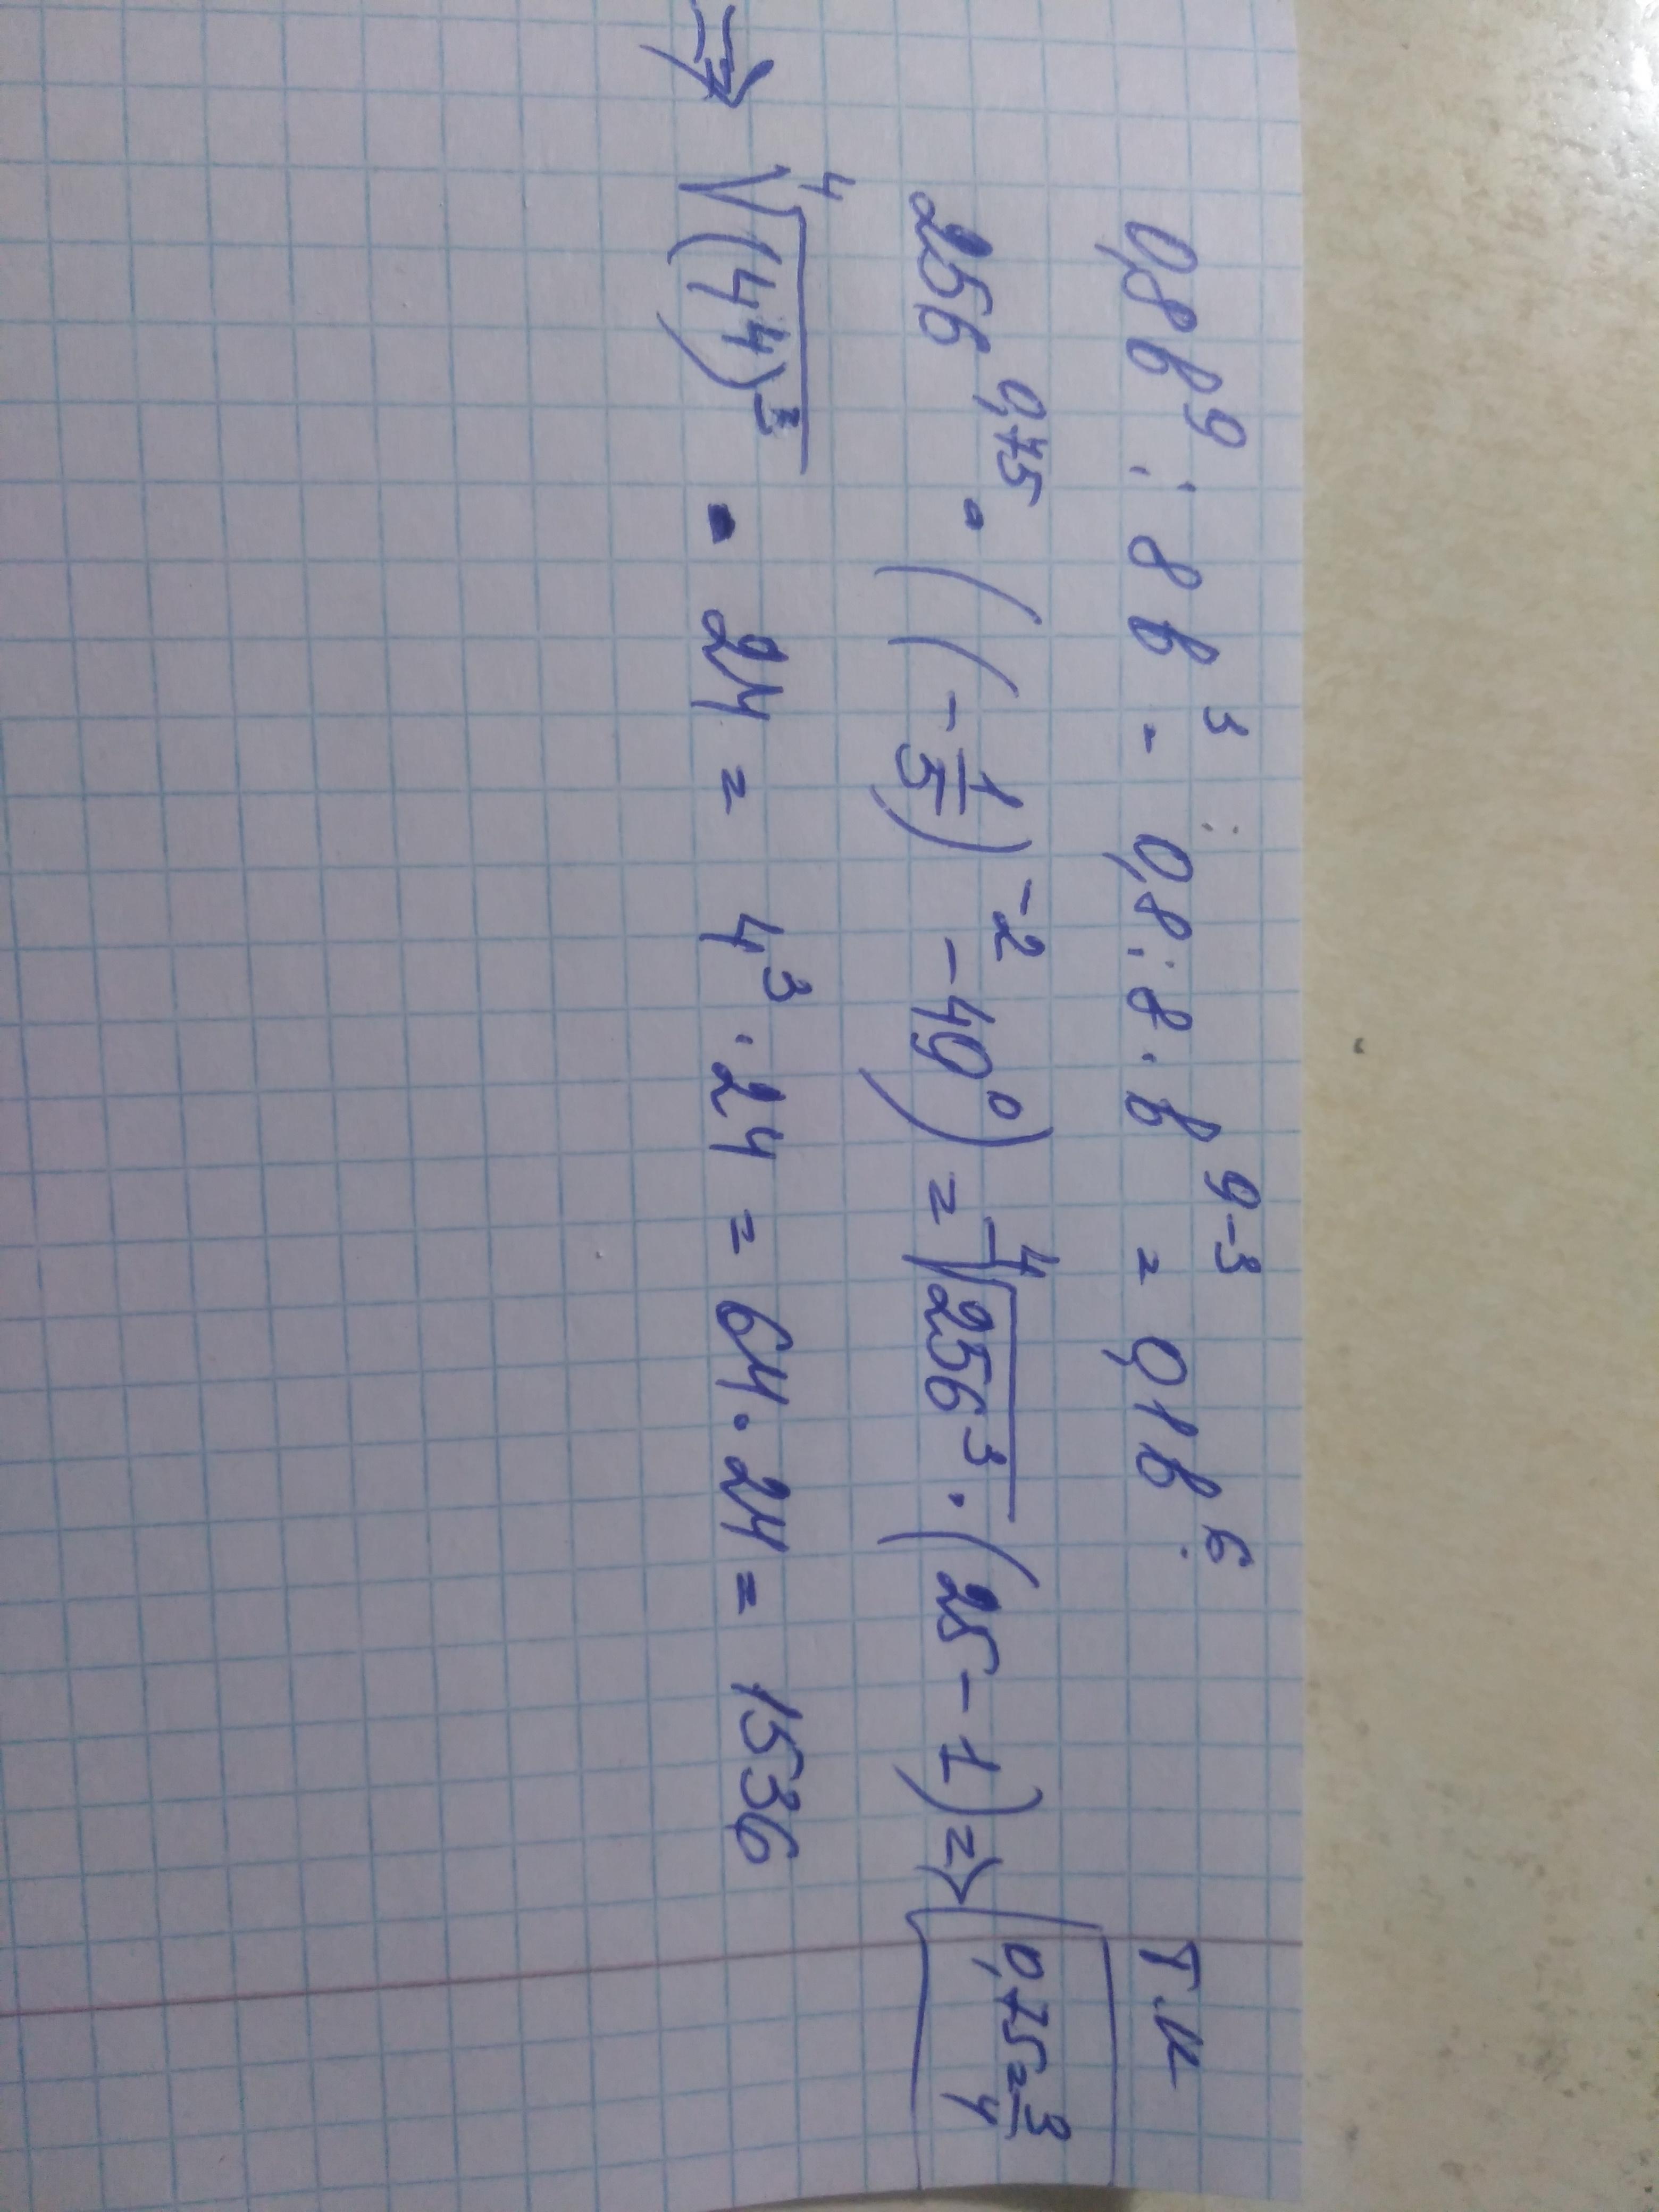 0,8b⁹ : 8b³ = 0,8 : 8 · b⁹⁻³ = 0,1b⁶. Т.к
256^0,75 · ((-1/5)⁻² - 49⁰) = ⁴√256³ · (25 - 1) => 0,75 = 3/4
=> ⁴√(4⁴)³ · 24 = 4³ · 24 = 64 · 24 = 1536